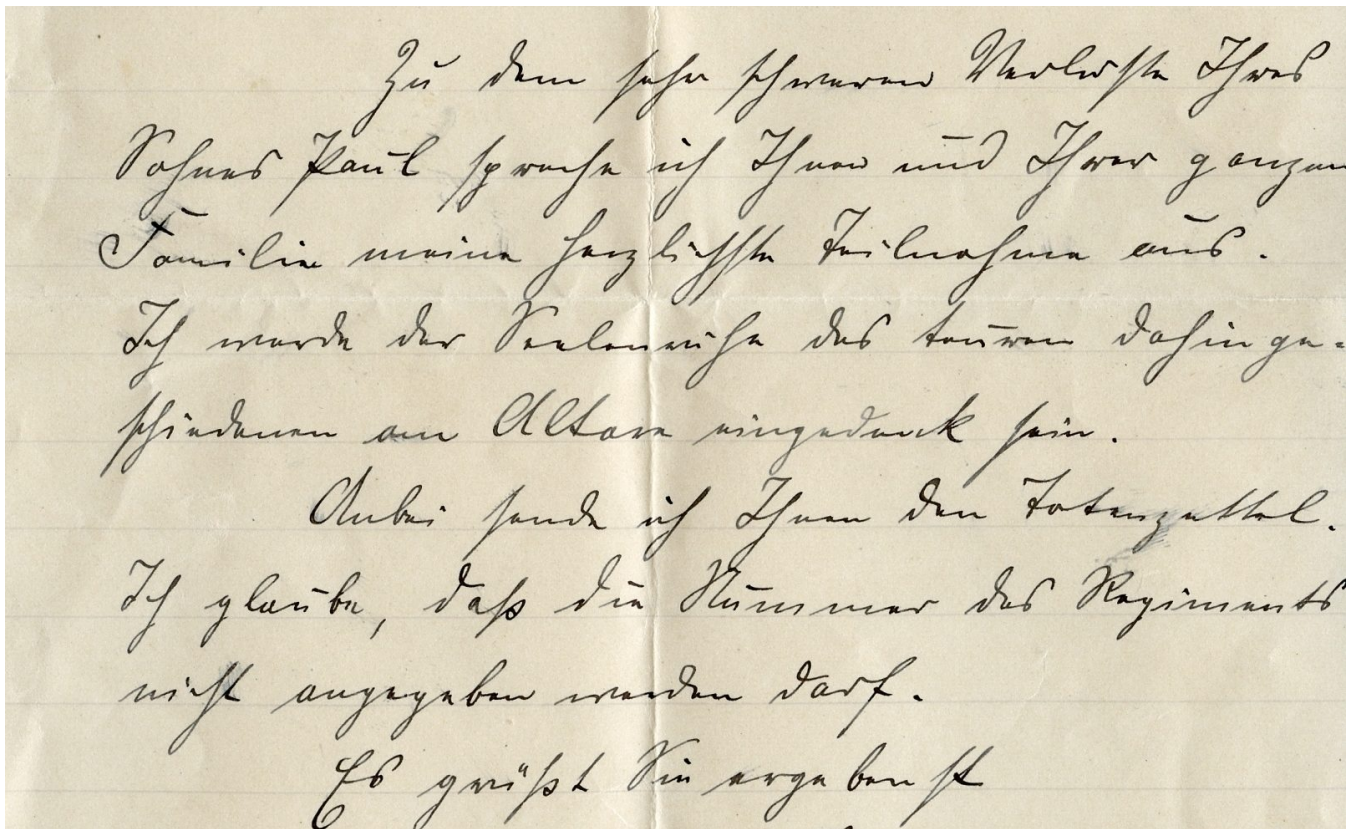 Zu dem sehr schweren Verluste Ihres
Sohnes Paul spreche ich Ihnen und Ihrer ganzen
Familie meine herzlichste Teilnahme aus.
Ich werde der Seelenruhe des teuren Dahinge-
schiedenen am Altare eingedenk sein.
Anbei sende ich Ihnen den Totenzettel.
Ich glaube, daß die Nummer des Regiments
nicht angegeben werden darf.
Es grüßt Sie ergebenst